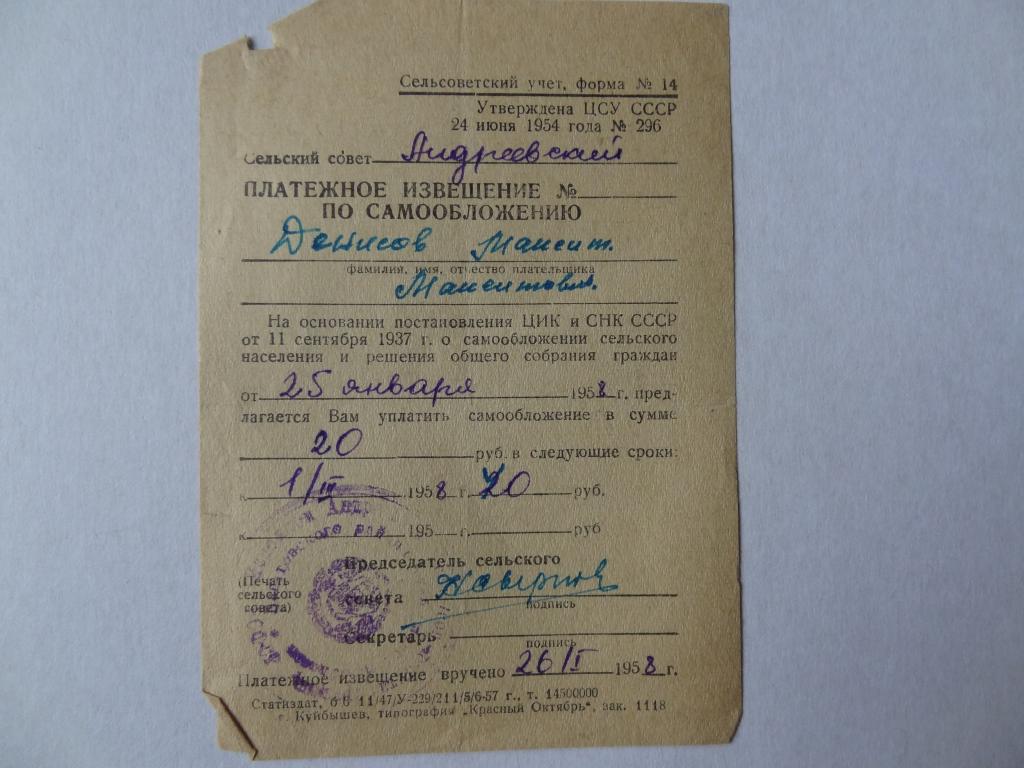 Сельсоветский учет, форма № 14
Утверждена ЦСУ СССР
24 июня 1954 года № 296
Сельский совет Андреевский
ПЛАТЕЖНОЕ ИЗВЕЩЕНИЕ №
ПО САМООБЛОЖЕНИЮ
Денисов
фамилия, имя, отчество плательщика
На основании постановления ЦИК и СНК СССР
от 11 сентября 1937 г. о самообложении сельского
населения и решения общего собрания граждан
от 25 января 1958 г. пред-
лагается Вам уплатить самообложение в сумме
20 руб. в следующие сроки:
к 1/III 1958 г. 20 руб.
к 195 г. руб
Председатель сельского
совета
подпись
(Печать
сельского
совета)
Секретарь
подпись
Платежное извещение вручено 26/I 1958 г.
Статиздат, б/б 11/47/У-229/211/5/6-57 г., т. 14500000
г. Куйбышев, типография „Красный Октябрь", зак. 1118